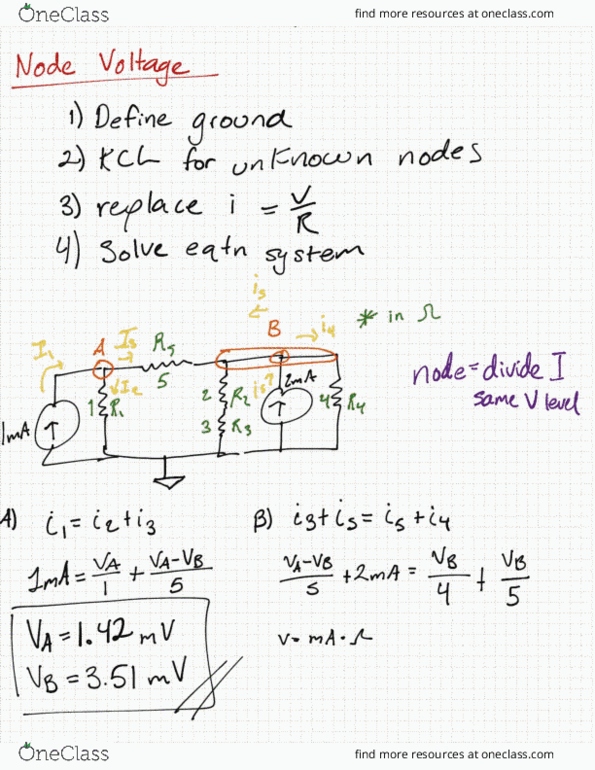 OneClass
find more resources at oneclass.com
Node Voltage
1) Define ground
2) KCL for unknown nodes
3) replace i = V/R
4) Solve eqtn system
i5
B
i4
* in Ω
I1
A
I3
R5
I2
5
1
R1
2
R2
3
R3
2mA
4
R4
1mA
node = divide I
same V level
A) i1 = i2 + i3
1mA = VA/1 + (VA-VB)/5
VA = 1.42 mV
VB = 3.51 mV
B) i3 + i5 = i5 + i4
(VA-VB)/5 + 2mA = VB/4 + VB/5
V = mA·Ω
OneClass
find more resources at oneclass.com